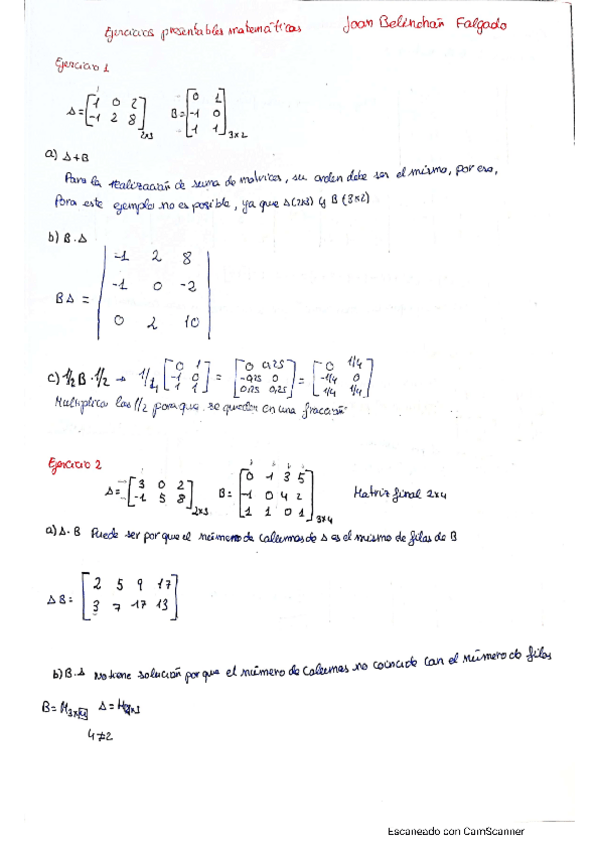 Ejercicios presentables matemáticas Joan Belinchañ Falgado
Ejercicio 1
A=[1 0 2 B=[0 1
-1 2 8]2x3 -1 0
1 1]3x2
a) A+B
Para la realización de suma de matrices, su orden debe ser el mismo, por eso,
Para este ejemplo no es posible, ya que A(2x3) y B (3x2)
b) B·A
-1 2 8
BA = -1 0 -2
0 2 10
c) 1/2 B · 1/2 → 1/4 [0 1 = [0 0,25 = [0 1/4
-1 0 -0,25 0 -1/4 0
1 1] 0,25 0,25] 1/4 1/4]
Multiplica las 1/2 para que se queden en una fracción
Ejercicio 2
A=[3 0 2 B=[0 1 3 5 Matriz final 2x4
-1 5 8]2x3 -1 0 4 2
1 1 0 1]3x4
a) A·B Puede ser por que el número de columnas de A es el mismo de filas de B
AB= [2 5 9 17
3 7 17 13]
b) B·A No tiene solución por que el número de columnas no coincide con el número de filas
B=M3x4 A=M2x3
4≠2
Escaneado con CamScanner